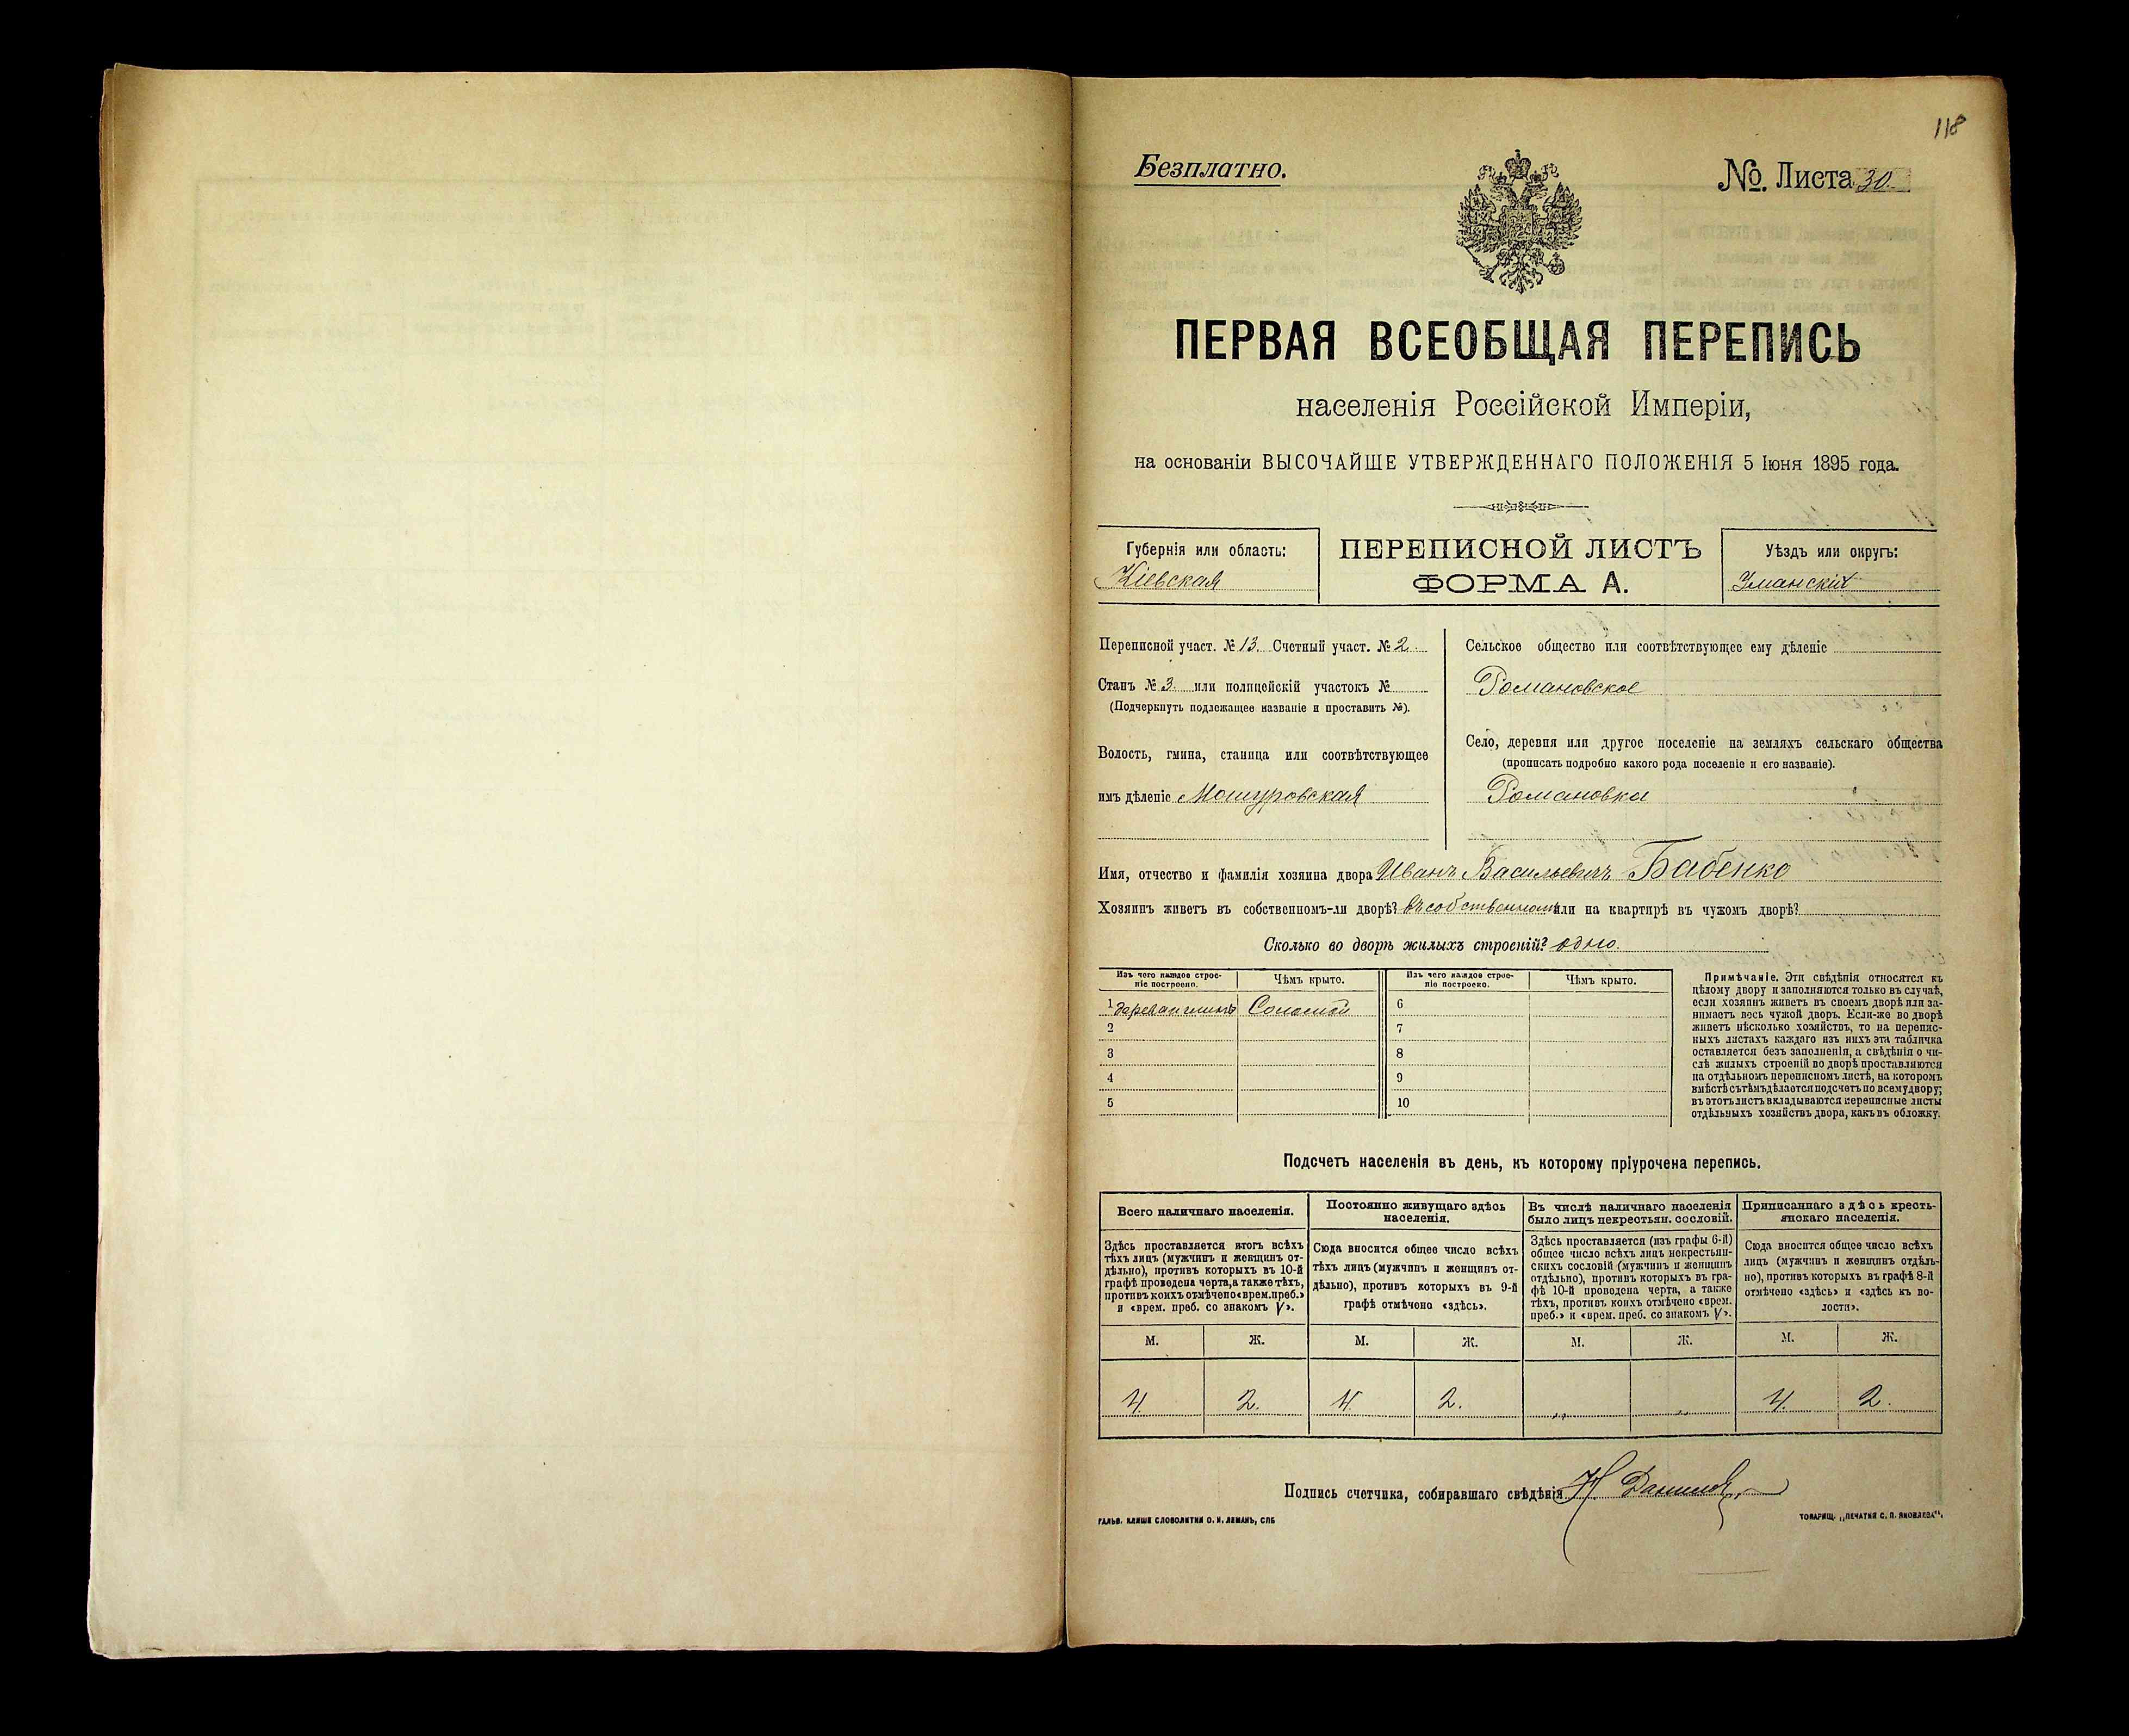 118
Безплатно.
№. Листа 30.
ПЕРВАЯ ВСЕОБЩАЯ ПЕРЕПИСЬ
населенія Россійской Имперіи,
на основаніи ВЫСОЧАЙШЕ УТВЕРЖДЕННАГО ПОЛОЖЕНІЯ 5 Іюня 1895 года.
Губернія или область:
Кіевская
ПЕРЕПИСНОЙ ЛИСТЪ
ФОРМА А.
Уѣздъ или округъ:
Уманскій
Переписной участ. № 13. Счетный участ. № 2.
Станъ № 3. или полицейскій участокъ №
(Подчеркнуть подлежащее названіе и проставить №).
Волость, гмина, станица или соотвѣтствующее
имъ дѣленіе Мошуровская
Сельское общество или соотвѣтствующее ему дѣленіе
Романовское
Село, деревня или другое поселеніе на земляхъ сельскаго общества
(прописать подробно какого рода поселеніе и его названіе).
Романовка
Имя, отчество и фамилія хозяина двора Иванъ Васильевичъ Бабенко
Хозяинъ живетъ въ собственномъ-ли дворѣ? въ собственномъ или на квартирѣ въ чужомъ дворѣ?
Сколько во дворѣ жилыхъ строеній? одно.
Изъ чего каждое строе-
ніе построено.
Чѣмъ крыто.
Изъ чего каждое строе-
ніе построено.
Чѣмъ крыто.
1 Соломой 6
2 7
3 8
4 9
5 10
Примѣчаніе. Эти свѣдѣнія относятся къ
цѣлому двору и заполняются только въ случаѣ,
если хозяинъ живетъ въ своемъ дворѣ или за-
нимаетъ весь чужой дворъ. Если-же во дворѣ
живетъ нѣсколько хозяйствъ, то на перепис-
ныхъ листахъ каждаго изъ нихъ эта табличка
оставляется безъ заполненія, а свѣдѣнія о чи-
слѣ жилыхъ строеній во дворѣ проставляются
на отдѣльномъ переписномъ листѣ, на которомъ
вмѣстѣ съ тѣмъ дѣлается подсчетъ по всему двору;
въ этотъ листъ вкладываются переписные листы
отдѣльныхъ хозяйствъ двора, какъ въ обложку.
Подсчетъ населенія въ день, къ которому пріурочена перепись.
Всего наличнаго населенія.
Здѣсь проставляется итогъ всѣхъ
тѣхъ лицъ (мужчинъ и женщинъ от-
дѣльно), противъ которыхъ въ 10-й
графѣ проведена черта, а также тѣхъ,
противъ коихъ отмѣчено «врем. преб.»
и «врем. преб. со знакомъ V».
Постоянно живущаго здѣсь
населенія.
Сюда вносится общее число всѣхъ
тѣхъ лицъ (мужчинъ и женщинъ от-
дѣльно), противъ которыхъ въ 9-й
графѣ отмѣчено «здѣсь».
Въ числѣ наличнаго населенія
было лицъ некрестьян. сословій.
Здѣсь проставляется (изъ графы 6-й)
общее число всѣхъ лицъ некрестьян-
скихъ сословій (мужчинъ и женщинъ
отдѣльно), противъ которыхъ въ гра-
фѣ 10-й проведена черта, а также
тѣхъ, противъ коихъ отмѣчено «врем.
преб.» и «врем. преб. со знакомъ V».
Приписаннаго здѣсь кресть-
янскаго населенія.
Сюда вносится общее число всѣхъ
лицъ (мужчинъ и женщинъ отдѣль-
но), противъ которыхъ въ графѣ 8-й
отмѣчено «здѣсь» и «здѣсь къ во-
лости».
М. Ж. М. Ж. М. Ж. М. Ж.
4. 2. 4. 2. „ „ 4. 2.
Подпись счетчика, собиравшаго свѣдѣнія Н
ГАЛЬВ. КЛИШЕ СЛОВОЛИТНИ О. И. ЛЕМАНЪ, СПБ
ТОВАРИЩ. „ПЕЧАТНЯ С. П. ЯКОВЛЕВА“.